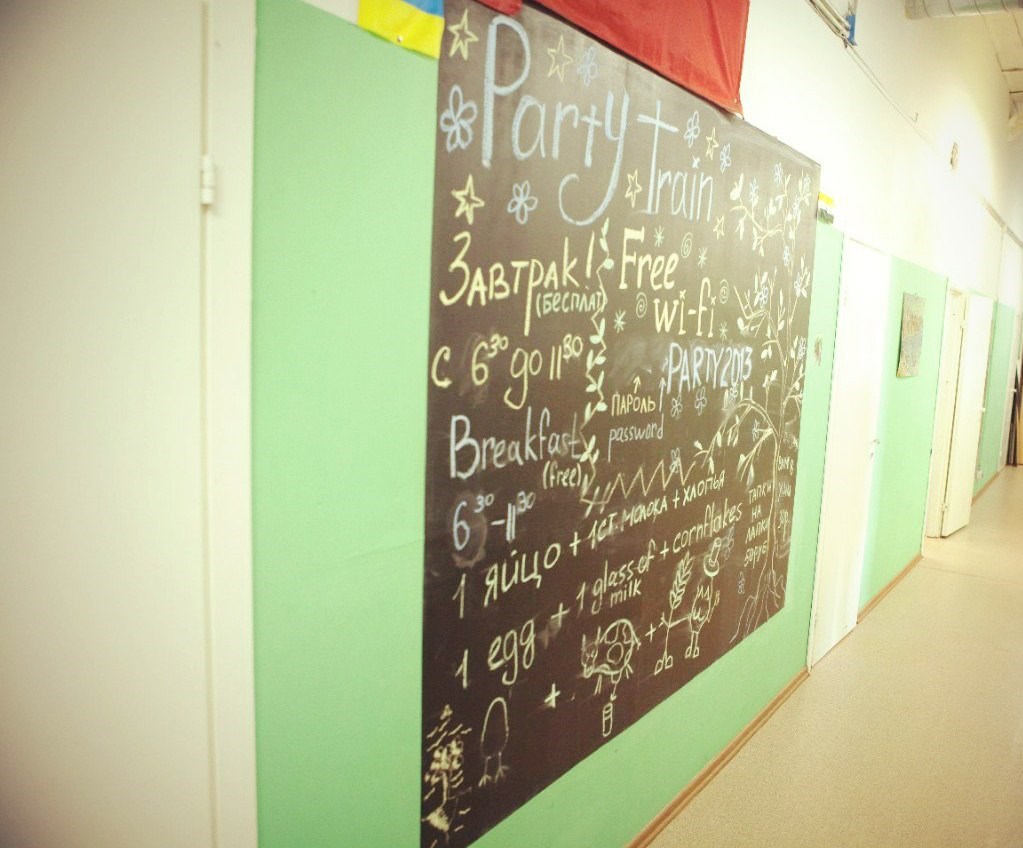 Party
Train
Завтрак!
(бесплат)
с 6³⁰ до 11³⁰
Breakfast
(free)
6³⁰-11³⁰
Free
wi-fi
PARTY2013
ПАРОЛЬ
password
1 яйцо + 1ст. молока + хлопья
1 egg + 1 glass of milk + cornflakes
+
+
ТАПКИ
НА
ЛАПКИ
50руб